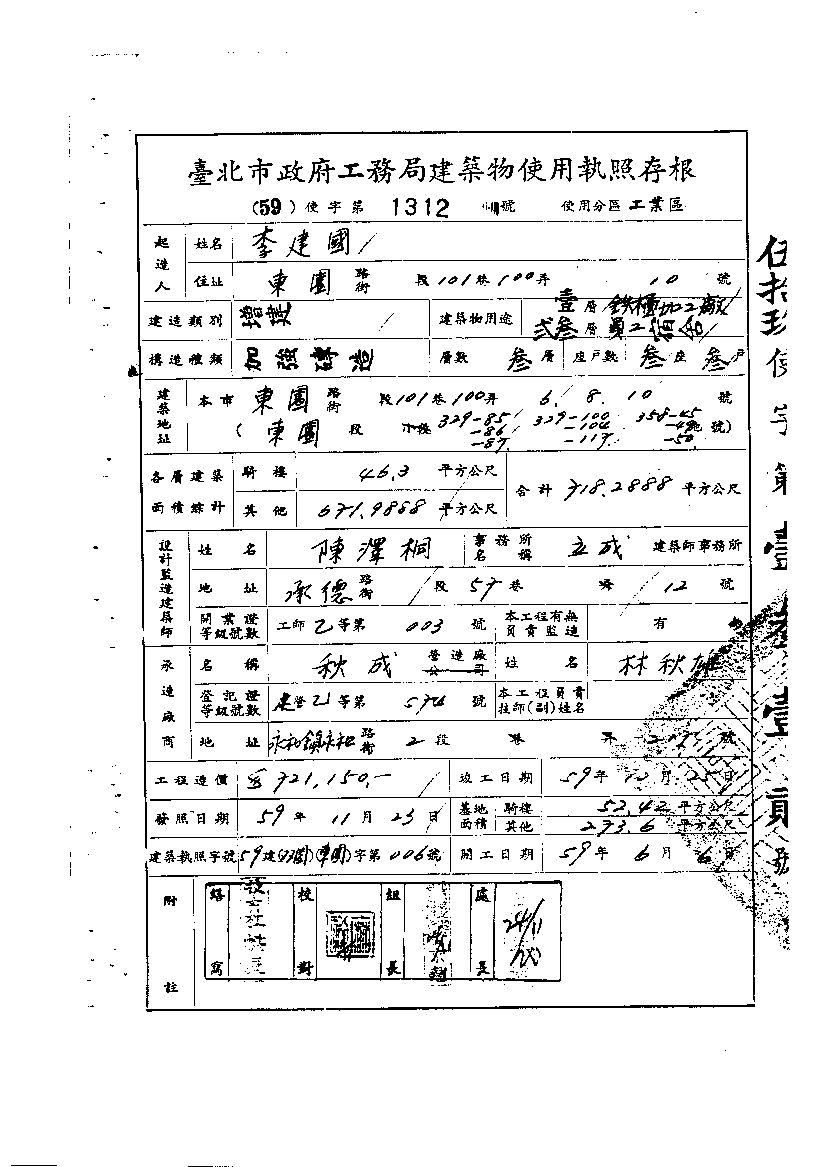 臺北市政府工務局建築物使用執照存根
(59)使字第 1312 號 使用分區 工業區
起造人 姓名 李建國
住址 東園 路街 段101巷100弄 10號
建造類別 增建 建築物用途 壹層鉄櫃加工廠 貳叁層員工宿舍
構造種類 加強磚造 層數 叁層 座戶數 叁座叁戶
建築地址 本市 東園 路街 段101巷100弄 6.8.10 號
(東園 段 小段 329-85 329-100 358-45
-86 -104 地號)
-87 -117 -50
各層建築面積綜計 騎樓 46.3 平方公尺 合計 718.2888 平方公尺
其他 671.9888 平方公尺
設計監造建築師 姓名 陳澤桐 事務所名稱 立成 建築師事務所
地址 承德 路街 1段 57巷 弄 12號
開業證等級號數 工師乙等第 003 號 本工程有無負責監造 有
承造廠商 名稱 秋成 營造廠公司 姓名 林秋雄
登記證等級號數 建營乙等第 574 號 本工程負責技師(副)姓名
地址 永和鎮永和 路街 2段 巷 弄 號
工程造價 721,150.- 竣工日期 59年 月25日
發照日期 59年11月23日 基地面積 騎樓 52.42 平方公尺
其他 273.6 平方公尺
建築執照字號 59建( )(東園)字第006號 開工日期 59年6月6日
附註 繕寫 校對 組長 處長
24/11
伍拾玖使字第壹叁壹貳號